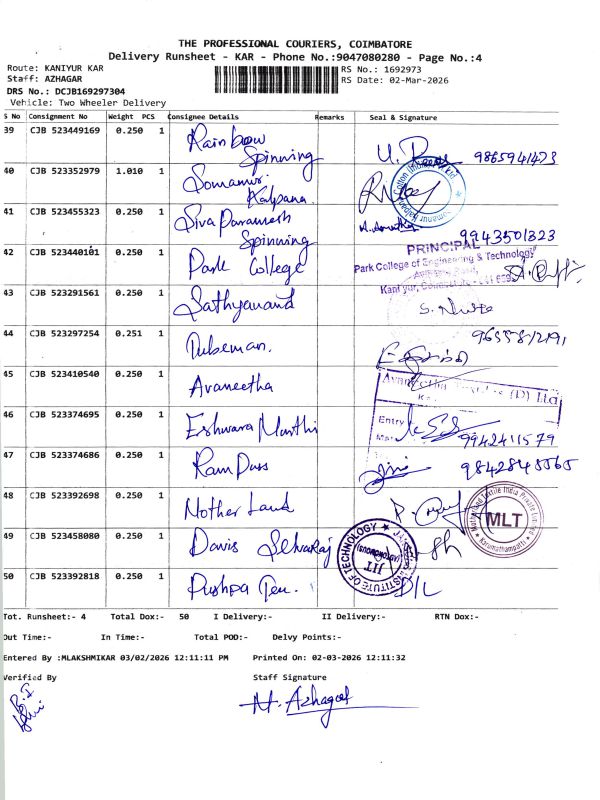 THE PROFESSIONAL COURIERS, COIMBATORE
Delivery Runsheet - KAR - Phone No.:9047080280 - Page No.:4
Route: KANIYUR KAR
RS No.: 1692973
Staff: AZHAGAR
RS Date: 02-Mar-2026
DRS No.: DCJB169297304
Vehicle: Two Wheeler Delivery
S No Consignment No Weight PCS Consignee Details Remarks Seal & Signature
39 CJB 523449169 0.250 1 Rainbow Spinning 9865941423
40 CJB 523352979 1.010 1 Kalpana
41 CJB 523455323 0.250 1 Siva Paramesh Spinning 9943501323
42 CJB 523440101 0.250 1 Park College
PRINCIPAL
Park College of Engineering & Technology
43 CJB 523291561 0.250 1 Sathyanand
44 CJB 523297254 0.251 1 Tubeman.
45 CJB 523410540 0.250 1 Avaneetha
46 CJB 523374695 0.250 1 Eshwara Murthi Entry 9942411579
47 CJB 523374686 0.250 1 Ram Dass
48 CJB 523392698 0.250 1 Mother Land
MLT
49 CJB 523458080 0.250 1 Davis Selvaraj
INSTITUTE OF TECHNOLOGY
JIT
(AUTONOMOUS)
50 CJB 523392818 0.250 1 Pushpa
Tot. Runsheet:- 4 Total Dox:- 50 I Delivery:- II Delivery:- RTN Dox:-
Out Time:- In Time:- Total POD:- Delvy Points:-
Entered By :MLAKSHMIKAR 03/02/2026 12:11:11 PM Printed On: 02-03-2026 12:11:32
Verified By Staff Signature
M. Azhagar